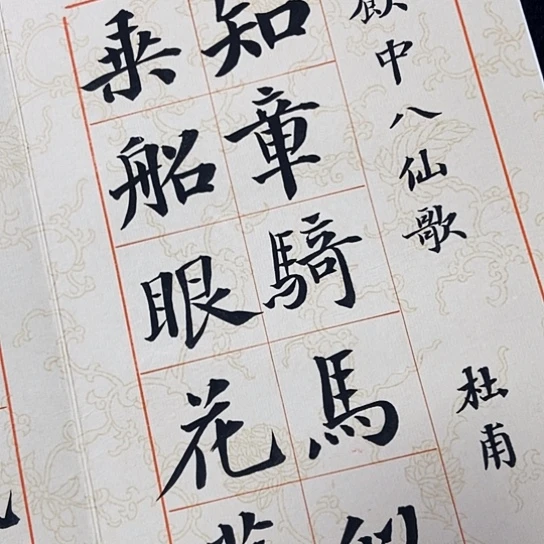 飲中八仙歌
杜甫
知章騎馬似
乘船眼花落